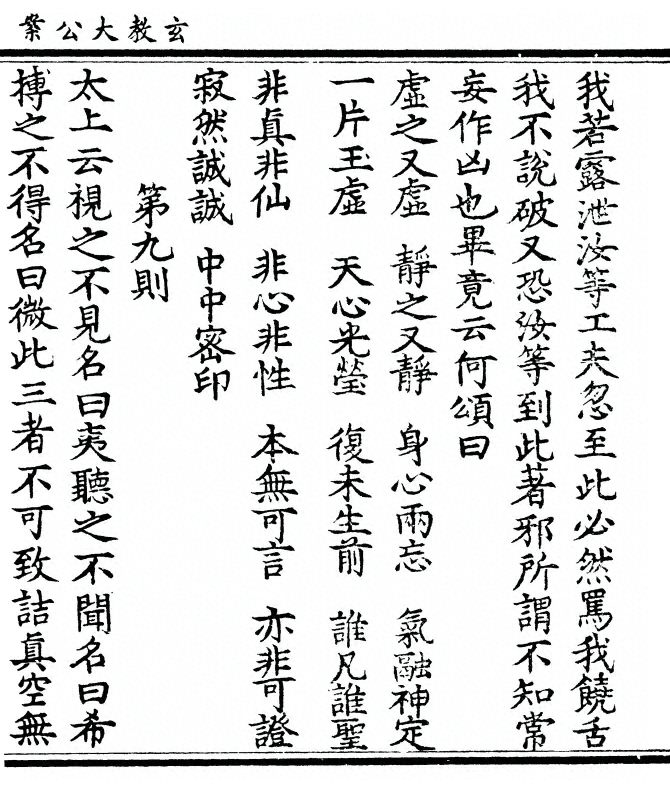 玄教大公案
我若露泄汝等工夫忽至此必然罵我饒舌
我不說破又恐汝等到此著邪所謂不知常
妄作凶也畢竟云何頌曰
虛之又虛 靜之又靜 身心兩忘 氣融神定
一片玉虛 天心光瑩 復未生前 誰凡誰聖
非眞非仙 非心非性 本無可言 亦非可證
寂然誠誠 中中密印
第九則
太上云視之不見名曰夷聽之不聞名曰希
摶之不得名曰微此三者不可致詰眞空無